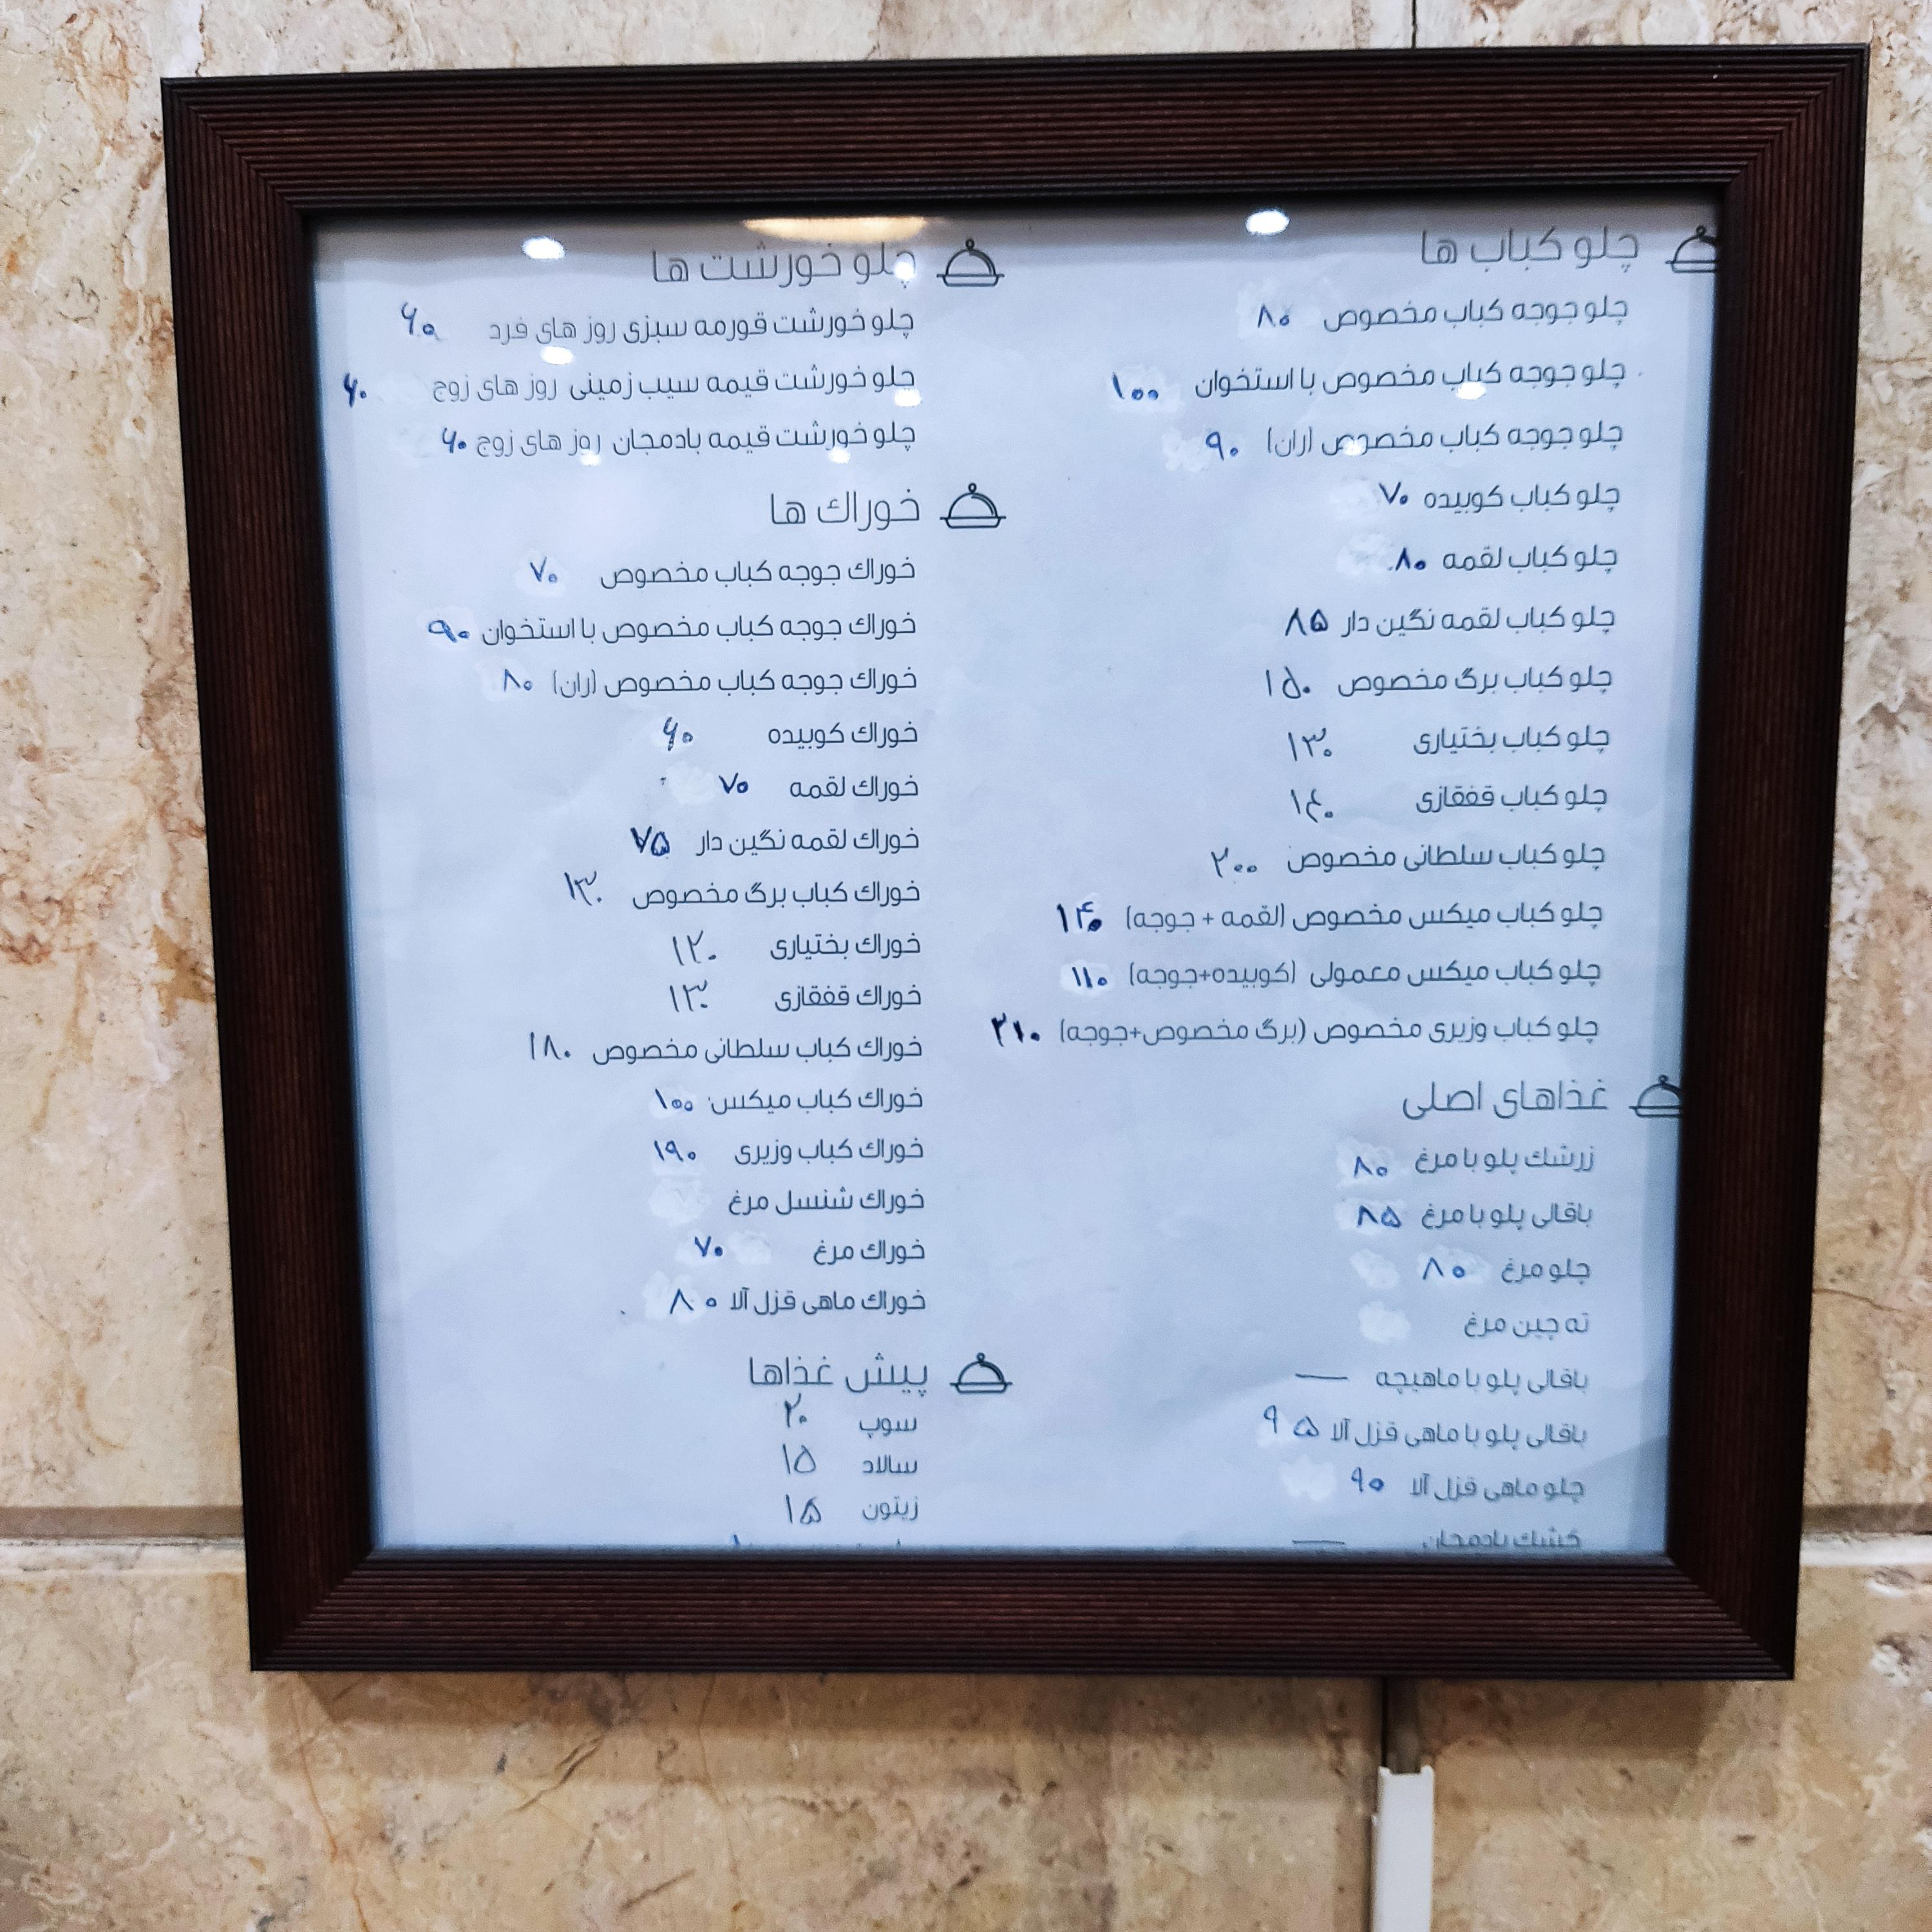 چلو کباب ها
چلو جوجه کباب مخصوص ۸۰
چلو جوجه کباب مخصوص با استخوان ۱۰۰
چلو جوجه کباب مخصوص (ران) ۹۰
چلو کباب کوبیده ۷۰
چلو کباب لقمه ۸۰
چلو کباب لقمه نگین دار ۸۵
چلو کباب برگ مخصوص ۱۵۰
چلو کباب بختیاری ۱۳۰
چلو کباب قفقازی ۱۴۰
چلو کباب سلطانی مخصوص ۲۰۰
چلو کباب میکس مخصوص (لقمه + جوجه) ۱۴۰
چلو کباب میکس معمولی (کوبیده+جوجه) ۱۱۰
چلو کباب وزیری مخصوص (برگ مخصوص+جوجه) ۲۱۰
غذاهای اصلی
زرشک پلو با مرغ ۸۰
باقالی پلو با مرغ ۸۵
چلو مرغ ۸۰
ته چین مرغ
باقالی پلو با ماهیچه —
باقالی پلو با ماهی قزل آلا ۹۵
چلو ماهی قزل آلا ۹۰
کشک بادمجان —
چلو خورشت ها
چلو خورشت قورمه سبزی روز های فرد ۶۰
چلو خورشت قیمه سیب زمینی روز های زوج ۶۰
چلو خورشت قیمه بادمجان روز های زوج ۶۰
خوراک ها
خوراک جوجه کباب مخصوص ۷۰
خوراک جوجه کباب مخصوص با استخوان ۹۰
خوراک جوجه کباب مخصوص (ران) ۸۰
خوراک کوبیده ۶۰
خوراک لقمه ۷۰
خوراک لقمه نگین دار ۷۵
خوراک کباب برگ مخصوص ۱۳۰
خوراک بختیاری ۱۲۰
خوراک قفقازی ۱۳۰
خوراک کباب سلطانی مخصوص ۱۸۰
خوراک کباب میکس ۱۰۰
خوراک کباب وزیری ۱۹۰
خوراک شنسل مرغ
خوراک مرغ ۷۰
خوراک ماهی قزل آلا ۸۰
پیش غذاها
سوپ ۲۰
سالاد ۱۵
زیتون ۱۵